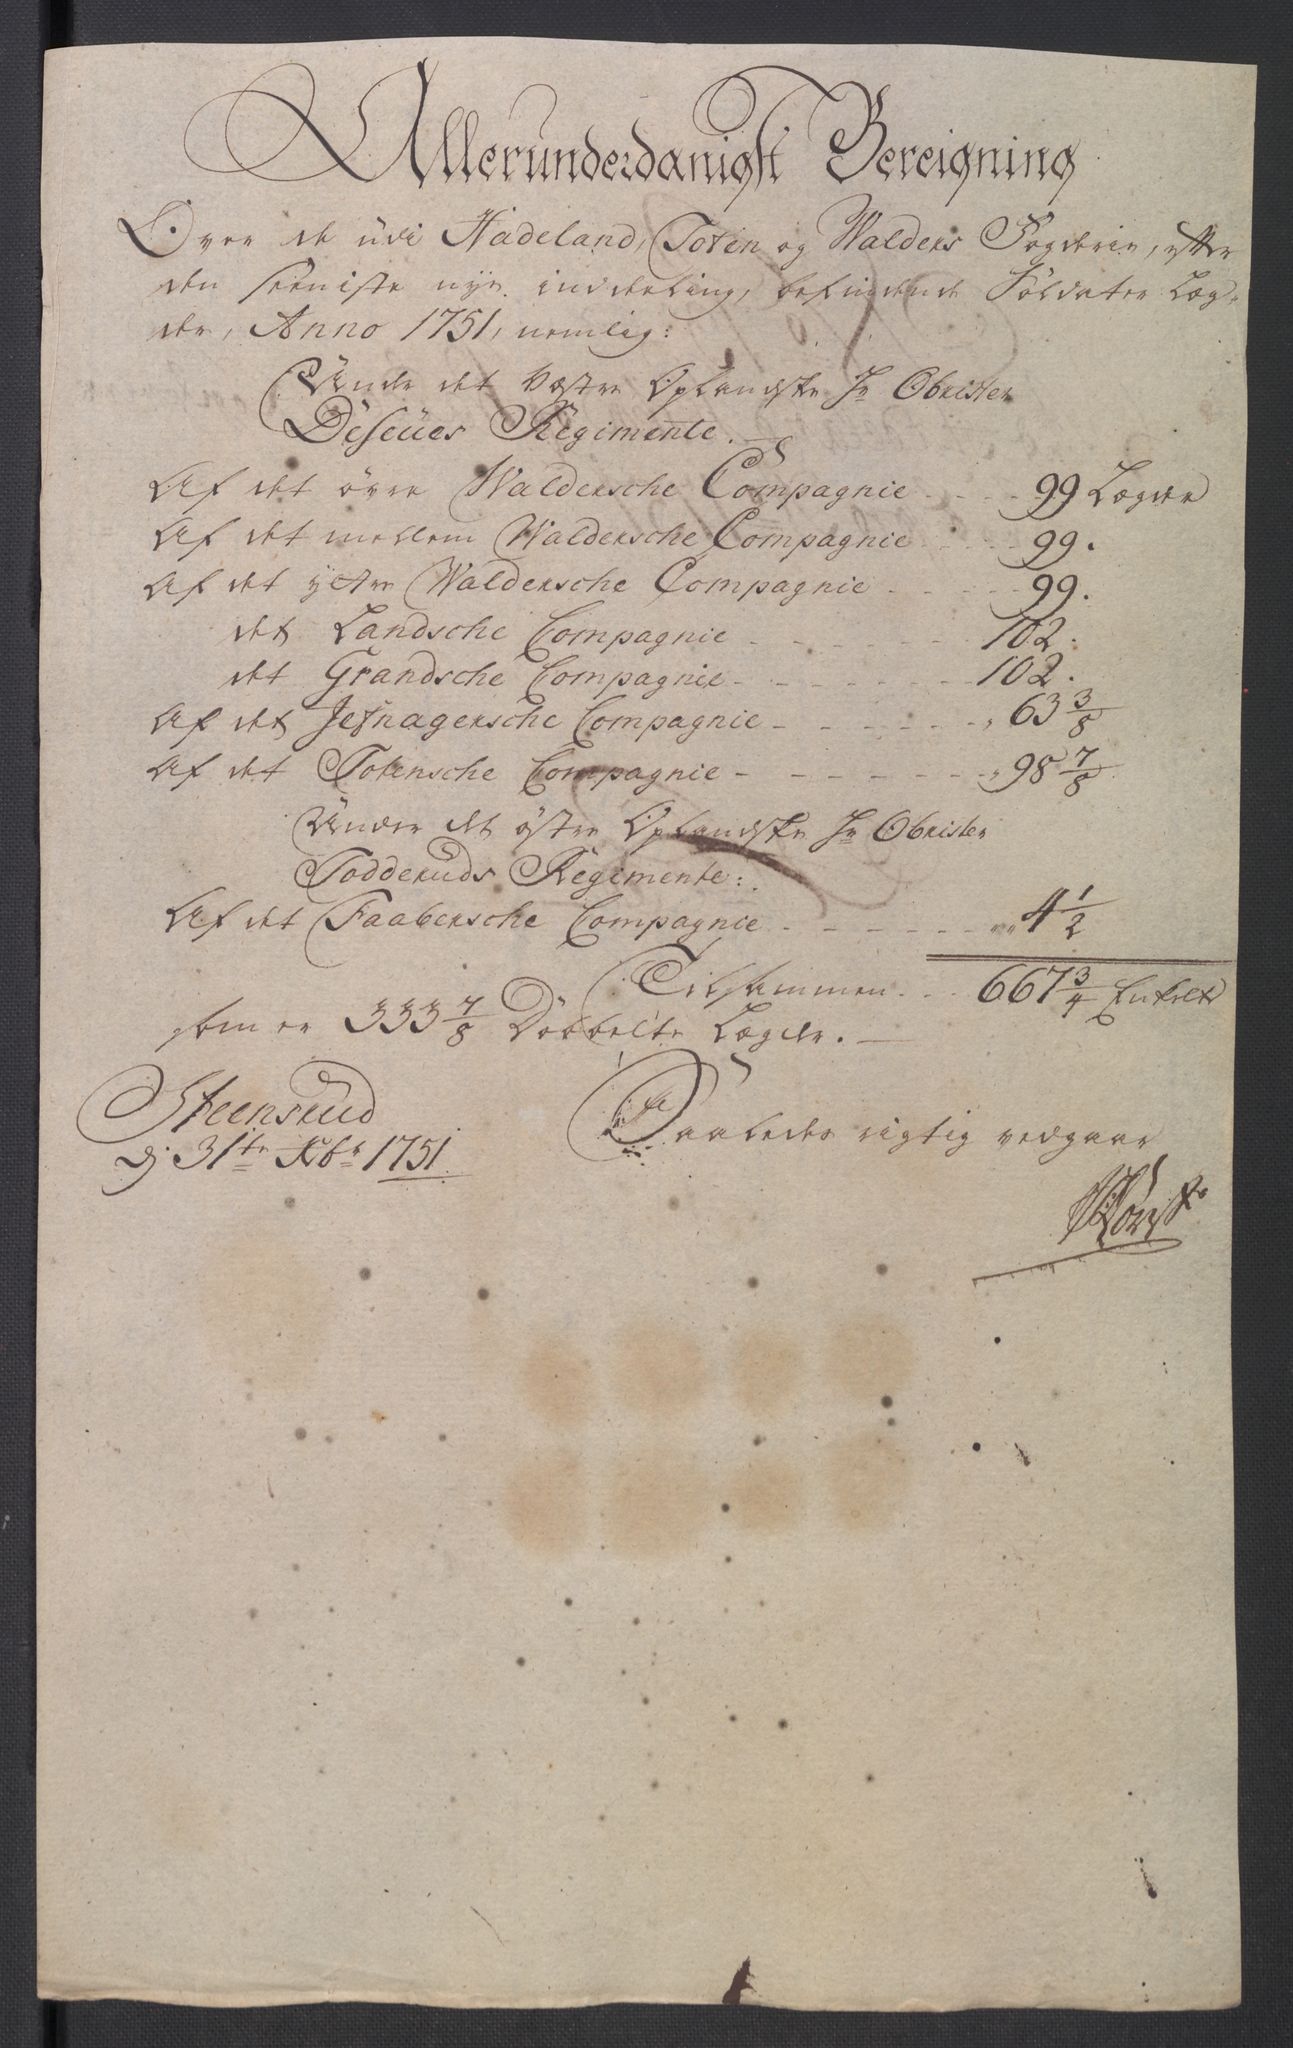 Allerunderdanigst Bereigning
Over de udi Hadeland, Toten og Walders Fogderie, efter
den seeniste nye inddeeling, befindende Soldater Læg-
der, Anno 1751, nemlig:
Under det Vestre Oplandske Hr Obrister
Deseues Regimente.
Af det övre Waldersche Compagnie - - - 99 Lægder
Af det mellem Waldersche Compagnie - - - 99.
Af det ÿtre Waldersche Compagnie - - - 99.
det Landsche Compagnie - - - 102.
det Grandsche Compagnie - - - 102.
Af det Jefnagersche Compagnie - - - 63 3/8
Af det Totensche Compagnie - - - 98 7/8
Under det östre Oplandske Hr Obrister
Todderuds Regimente:
Af det Faabersche Compagnie - - - 4 1/2
Tilsammen - - 667 3/4 Enkelte
som er 333 7/8 Dobbelte Lægder.
Steensrud
d. 31te Xbr 1751
Saaledes rigtig vedgaar